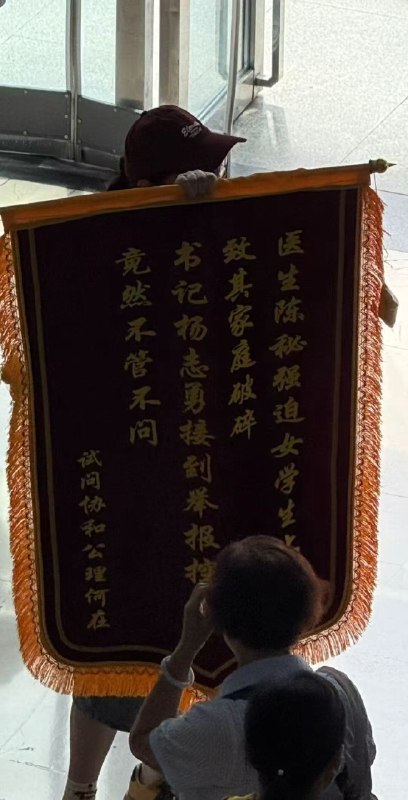 医生陈秘强迫女学生
致其家庭破碎
书记杨志勇接到举报
竟然不管不问
试问协和公理何在